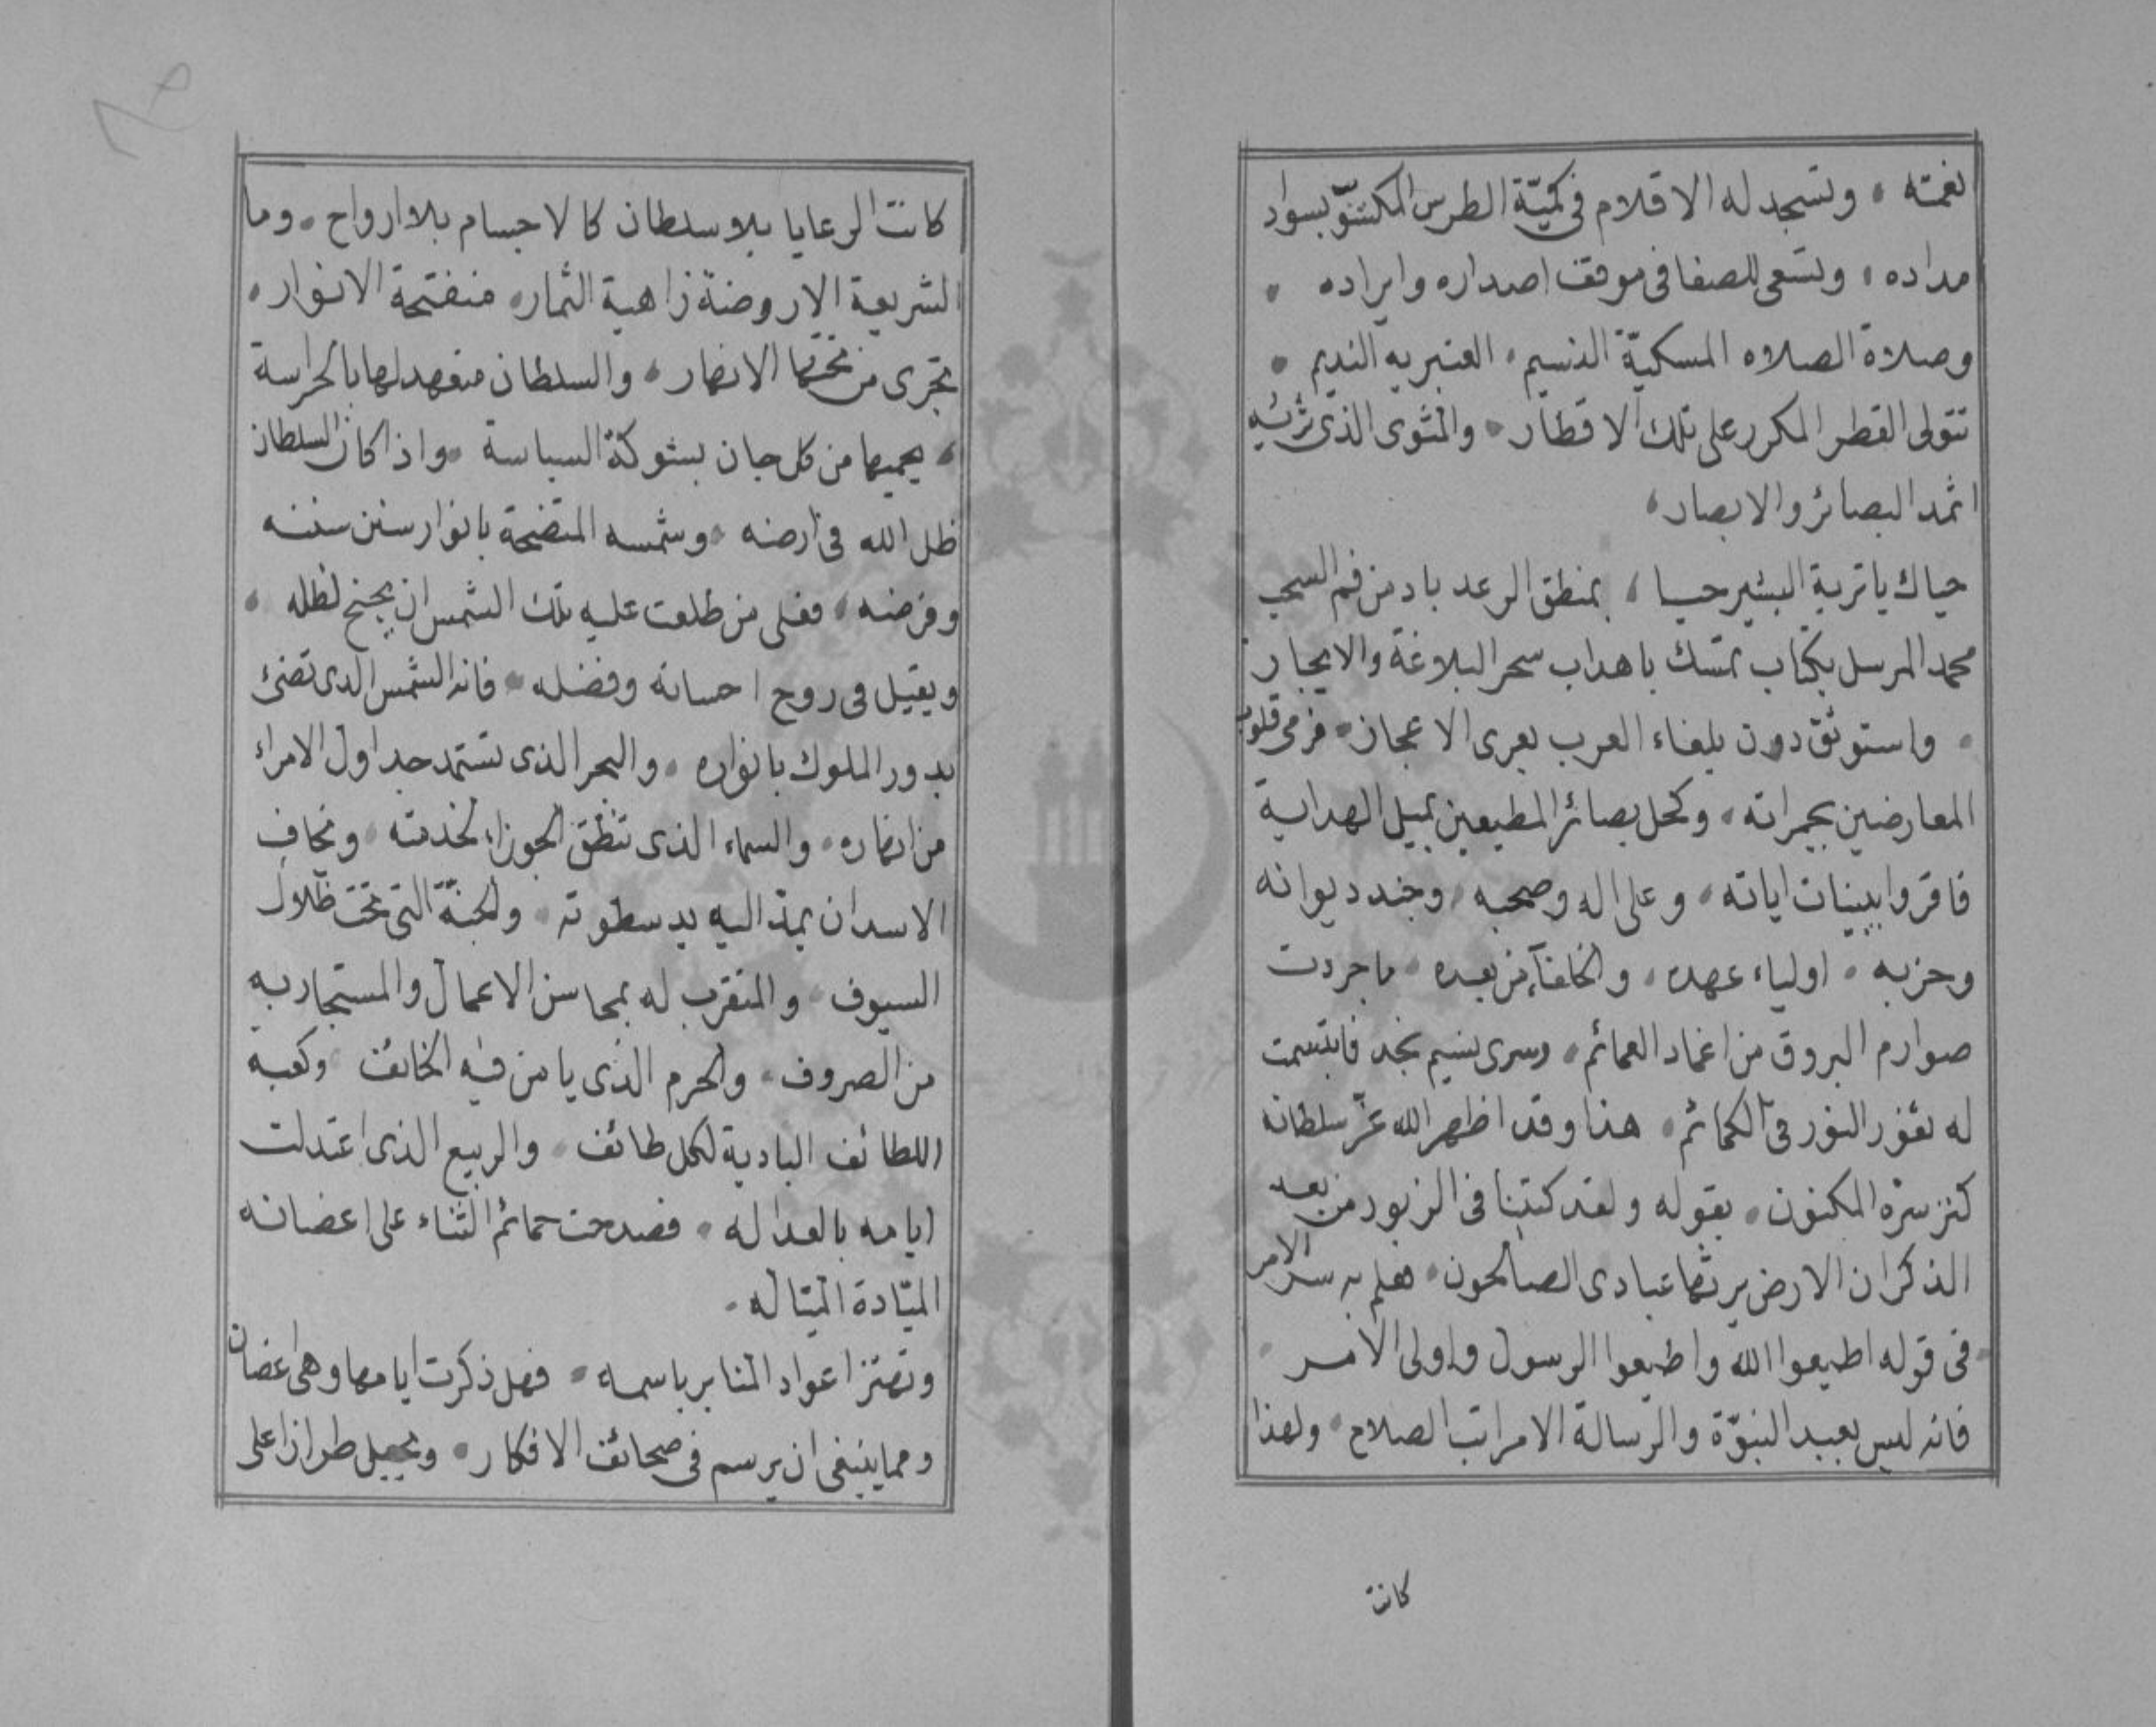 نعمته ، وتسجد له الاقلام فى كميّة الطرس المكسّو بسواد
مداده ، وتسعى للصفا فى موقف اصداره وايراده ،
وصلاة الصلاه المسكيّة النسيم ، العنبريه النديم ،
تتولى القطر المكرر على تلك الاقطار ، والمثوى الذى
اثمد البصائر والابصار ،
حياك يا تربة البشير حيا ، بمنطق الرعد باد من فم السحب
محمد المرسل بكتاب تمسّك باهداب سحر البلاغة والايجاز
، واستوثق دون بلغاء العرب بعرى الاعجاز ، فرمى قلوب
المعارضين بجمراته ، وكحل بصائر المطيعين بميل الهداية
فاقروا ببينات اياته ، وعلى اله وصحبه ، وجند ديوانه
وحزبه ، اولياء عهده ، والخلفآء من بعده ، ما جردت
صوارم البروق من اغماد الغمائم ، وسرى نسيم نجد فابتسمت
له ثغور النور فى الكمائم ، هذا وقد اظهر الله عزّ سلطانه
كنز سرّه المكنون ، بقوله ولقد كتبنا فى الزبور من بعد
الذكر ان الارض يرثها عبادى الصالحون ، فعلم به سر الامر
، فى قوله اطيعوا الله واطيعوا الرسول واولى الامر ،
فانه ليس بعيد النبوّة والرسالة الا مراتب الصلاح ، ولهذا
كانت
كانت الرعايا بلا سلطان كالاجسام بلا ارواح ، وما
الشريعة الا روضة زاهية الثمار ، منفتحة الانوار ،
تجرى من تحتها الانهار ، والسلطان متعهد لها بالحراسة
، يحميها من كل جان بشوكة السياسة ، واذا كان السلطان
ظل الله فى ارضه ، وشمسه المتضحة بانوار سنن سننه
وفرضه ، فعلى من طلعت عليه تلك الشمس ان يجنح لظله ،
ويقيل فى روح احسانه وفضله ، فانه الشمس الذى تضئ
بدور الملوك بانواره ، والبحر الذى تستمد جداول الامراء
من انهاره ، والسماء الذى تنطّق الجوزاء لخدمته ، وتخاف
الاسد ان يمدّ اليه يد سطوته ، والجنّة التى تحت ظلال
السيوف ، والمتقرب له بمحاسن الاعمال والمستجار به
من الصروف ، والحرم الذى يامن فيه الخائف ، وكعبة
اللطائف البادية لكل طائف ، والربيع الذى اعتدلت
ايامه بالعداله ، فصدحت حمائم الثناء على اغصانه
الميّادة الميّاله ،
وتهتز اعواد المنابر باسمه ، فهل ذكرت ايامها وهى اغصان
ومما ينبغى ان يرسم فى صحائف الافكار ، ويجعل طرازا على